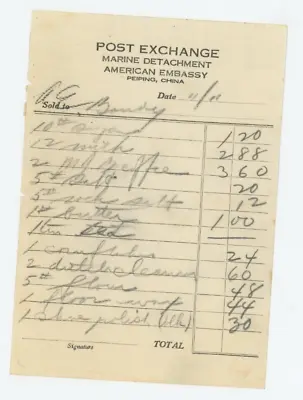 POST EXCHANGE
MARINE DETACHMENT
AMERICAN EMBASSY
PEIPING, CHINA
Date 11/
Sold to Bandy
10# Sugar 1 20
12 milk 2 88
2 MJ Coffee 3 60
5# Salt 20
5# salt 12
1# butter 1 00
1
1 24
2 60
5# flour 48
1 floor wax 44
1 Shoe polish (blk) 30
Signature TOTAL